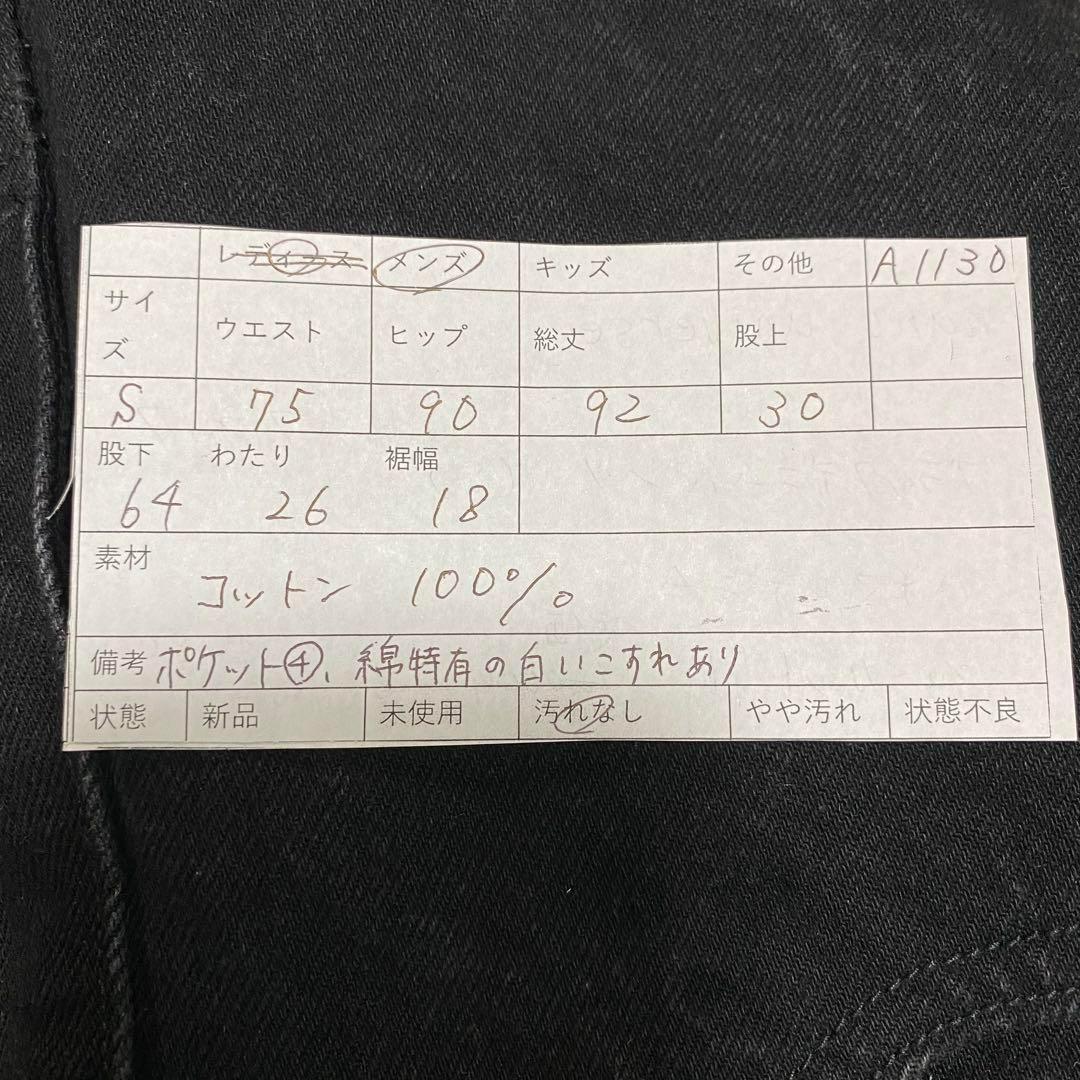 レディース メンズ キッズ その他 A1130
サイズ ウエスト ヒップ 総丈 股上
S 75 90 92 30
股下 わたり 裾幅
64 26 18
素材
コットン 100%
備考 ポケット④、綿特有の白いこすれあり
状態 新品 未使用 汚れなし やや汚れ 状態不良